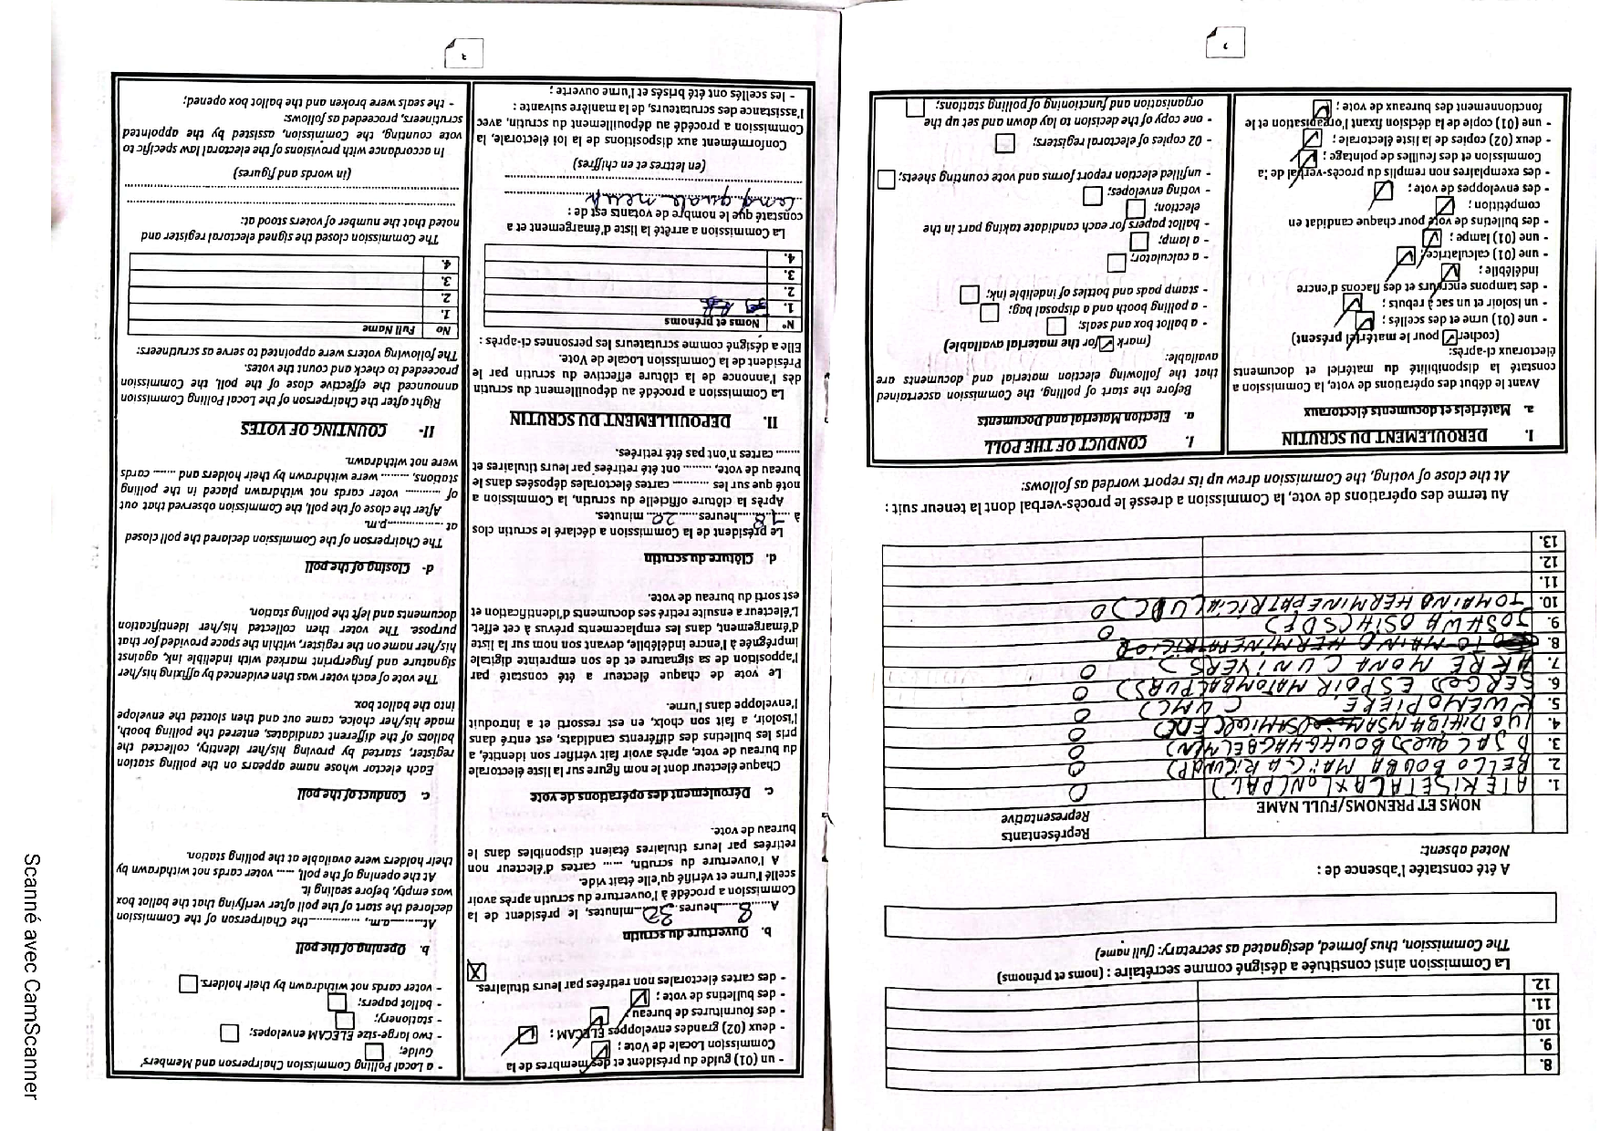 8.
9.
10.
11.
12.
La Commission ainsi constituée a désigné comme secrétaire : (noms et prénoms)
The Commission, thus formed, designated as secretary: (full name)
A été constatée l'absence de :
Noted absent:
NOMS ET PRENOMS/FULL NAME
Représentants
Representative
1. ATEKI SETA CAXTON (PAL)
2. BELLO BOUBA MAÏGARI (UNDP)
3. JACQUES BOUGHA
4.
5. KWEMO PIERRE (UMC)
6. SERGE ESPOIR MATOMBA (PURS)
7. (UNIVERS)
8.
9. JOSHWA OSIH (SDF)
10. TOMAINO HERMINE PATRICIA (UDC)
11.
12.
13.
Au terme des opérations de vote, la Commission a dressé le procès-verbal dont la teneur suit :
At the close of voting, the Commission drew up its report worded as follows:
I. DEROULEMENT DU SCRUTIN
a. Matériels et documents électoraux
Avant le début des opérations de vote, la Commission a
constaté la disponibilité du matériel et documents
électoraux ci-après:
(cocher pour le matériel présent)
- une (01) urne et des scellés ;
- un isoloir et un sac à rebuts ;
- des tampons encreurs et des flacons d'encre
indélébile ;
- une (01) calculatrice ;
- une (01) lampe ;
- des bulletins de vote pour chaque candidat en
compétition ;
- des enveloppes de vote ;
- des exemplaires non remplis du procès-verbal de la
Commission et des feuilles de pointage ;
- deux (02) copies de la liste électorale ;
- une (01) copie de la décision fixant l'organisation et le
fonctionnement des bureaux de vote ;
I. CONDUCT OF THE POLL
a. Election Material and Documents
Before the start of polling, the Commission ascertained
that the following election material and documents are
available:
(mark for the material available)
- a ballot box and seals;
- a polling booth and a disposal bag;
- stamp pads and bottles of indelible ink;
- a calculator;
- a lamp;
- ballot papers for each candidate taking part in the
election;
- voting envelopes;
- unfilled election report forms and vote counting sheets;
- 02 copies of electoral registers;
- one copy of the decision to lay down and set up the
organisation and functioning of polling stations;
2
- un (01) guide du président et des membres de la
Commission Locale de Vote ;
- deux (02) grandes enveloppes ELECAM ;
- des fournitures de bureau ;
- des bulletins de vote ;
- des cartes électorales non retirées par leurs titulaires.
b. Ouverture du scrutin
A 8 heures 30 minutes, le président de la
Commission a procédé à l'ouverture du scrutin après avoir
scellé l'urne et vérifié qu'elle était vide.
A l'ouverture du scrutin, ...... cartes d'électeur non
retirées par leurs titulaires étaient disponibles dans le
bureau de vote.
c. Déroulement des opérations de vote
Chaque électeur dont le nom figure sur la liste électorale
du bureau de vote, après avoir fait vérifier son identité, a
pris les bulletins des différents candidats, est entré dans
l'isoloir, a fait son choix, en est ressorti et a introduit
l'enveloppe dans l'urne.
Le vote de chaque électeur a été constaté par
l'apposition de sa signature et de son empreinte digitale
imprégnée à l'encre indélébile, devant son nom sur la liste
d'émargement, dans les emplacements prévus à cet effet.
L'électeur a ensuite retiré ses documents d'identification et
est sorti du bureau de vote.
d. Clôture du scrutin
Le président de la Commission a déclaré le scrutin clos
à 18 heures 20 minutes.
Après la clôture officielle du scrutin, la Commission a
noté que sur les .......... cartes électorales déposées dans le
bureau de vote, ........ ont été retirées par leurs titulaires et
........ cartes n'ont pas été retirées.
II. DEPOUILLEMENT DU SCRUTIN
La Commission a procédé au dépouillement du scrutin
dès l'annonce de la clôture effective du scrutin par le
Président de la Commission Locale de Vote.
Elle a désigné comme scrutateurs les personnes ci-après :
N° Noms et prénoms
1.
2.
3.
4.
La Commission a arrêté la liste d'émargement et a
constaté que le nombre de votants est de :
(en lettres et en chiffres)
Conformément aux dispositions de la loi électorale, la
Commission a procédé au dépouillement du scrutin, avec
l'assistance des scrutateurs, de la manière suivante :
- les scellés ont été brisés et l'urne ouverte ;
- a Local Polling Commission Chairperson and Members'
Guide;
- two large-size ELECAM envelopes;
- stationery;
- ballot papers;
- voter cards not withdrawn by their holders.
b. Opening of the poll
At..........a.m., ..............the Chairperson of the Commission
declared the start of the poll after verifying that the ballot box
was empty, before sealing it.
At the opening of the poll, ...... voter cards not withdrawn by
their holders were available at the polling station.
c. Conduct of the poll
Each elector whose name appears on the polling station
register, started by proving his/her identity, collected the
ballots of the different candidates, entered the polling booth,
made his/her choice, came out and then slotted the envelope
into the ballot box
The vote of each voter was then evidenced by affixing his/her
signature and fingerprint marked with indelible ink, against
his/her name on the register, within the space provided for that
purpose. The voter then collected his/her identification
documents and left the polling station.
d- Closing of the poll
The Chairperson of the Commission declared the poll closed
at ....................p.m.
After the close of the poll, the Commission observed that out
of .......... voter cards not withdrawn placed in the polling
stations, ......... were withdrawn by their holders and ...... cards
were not withdrawn.
II- COUNTING OF VOTES
Right after the Chairperson of the Local Polling Commission
announced the effective close of the poll, the Commission
proceeded to check and count the votes.
The following voters were appointed to serve as scrutineers:
No Full Name
1.
2.
3.
4.
The Commission closed the signed electoral register and
noted that the number of voters stood at:
(in words and figures)
In accordance with provisions of the electoral law specific to
vote counting, the Commission, assisted by the appointed
scrutineers, proceeded as follows:
- the seals were broken and the ballot box opened;
3
Scanné avec CamScanner